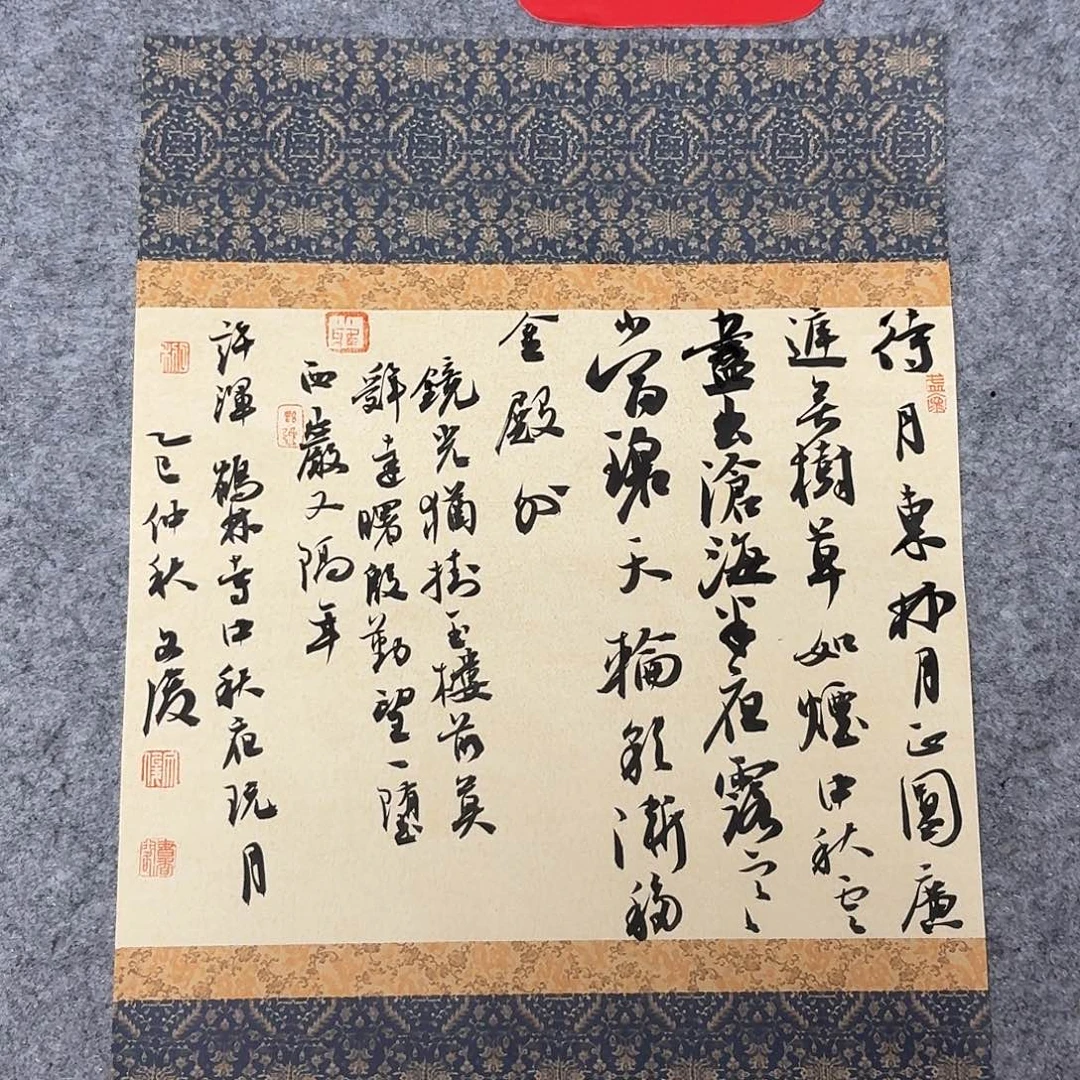 待月東林月正圓廣
庭無樹草如煙中秋雲
盡出滄海半夜露寒
當碧天輪影漸移
金殿外
鏡光猶掛玉樓前莫
辭達曙殷勤望一墮
西巖又隔年
許渾鶴林寺中秋夜玩月
乙巳仲秋文